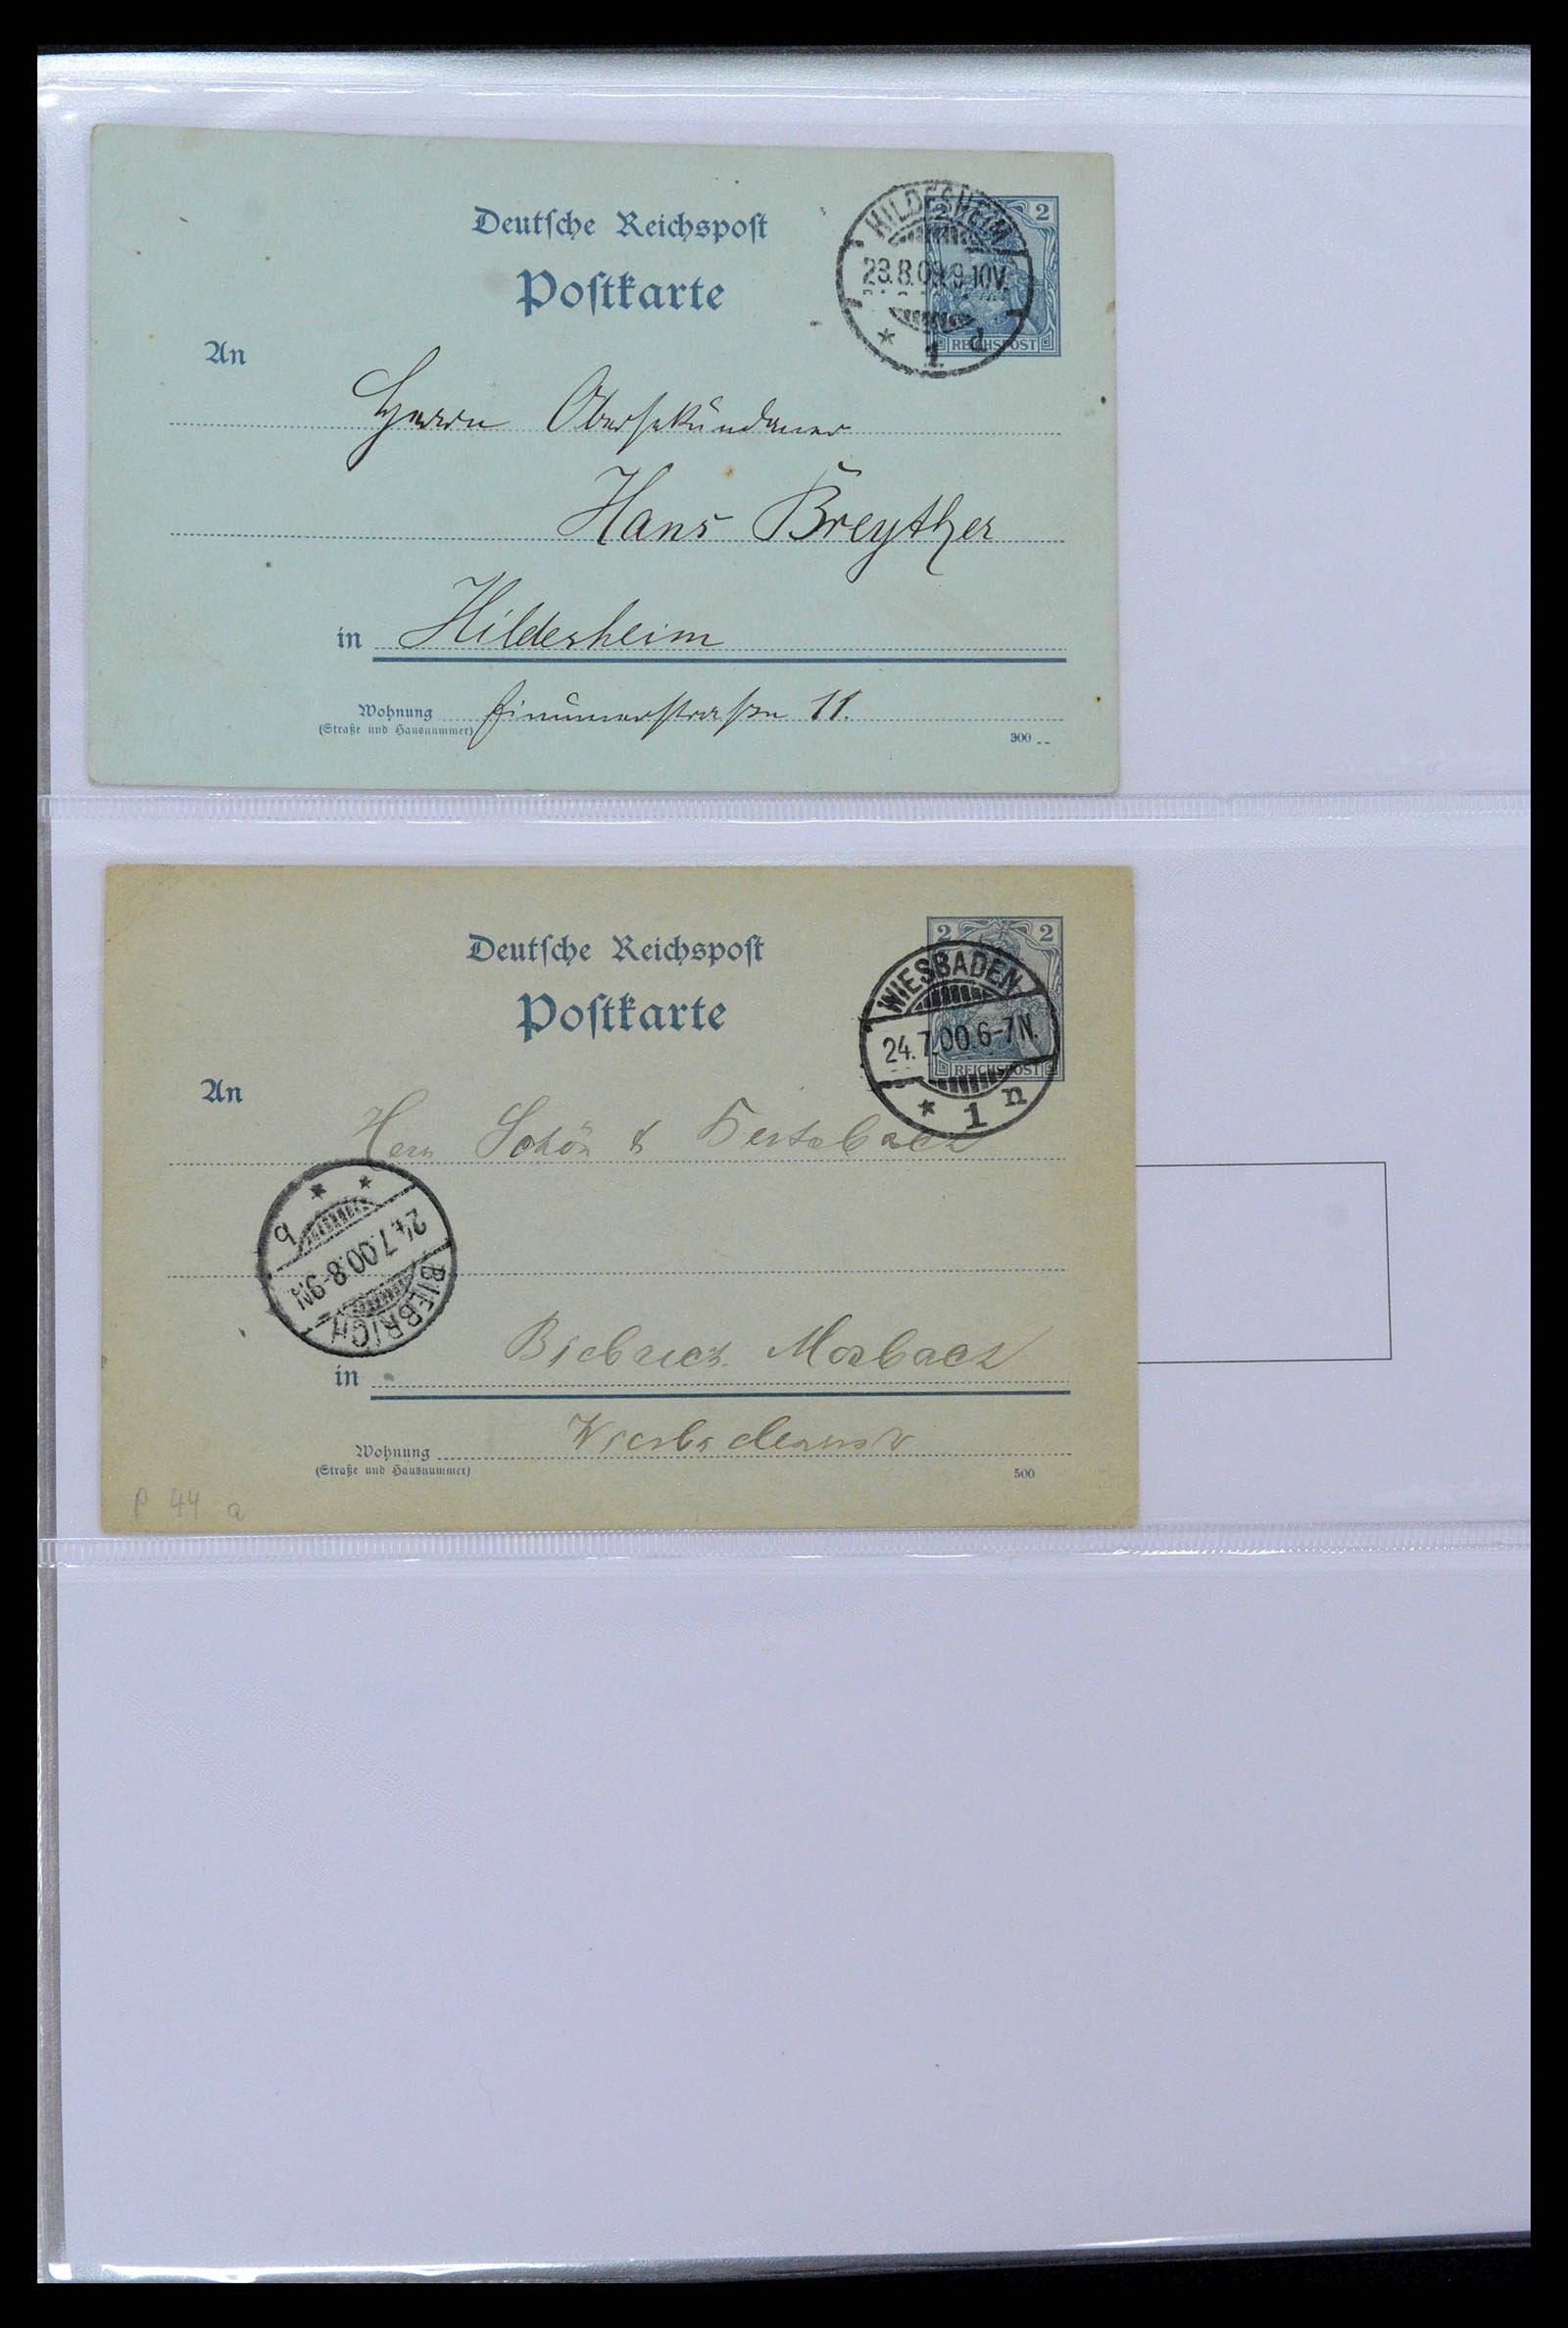 Deutſche Reichspoſt
Poſtkarte
HILDESHEIM
2 2
9-10V.
REICHSPOST
* 1 d
An
Herrn Obersekundaner
Hans Breyther
in Hildesheim
Wohnung 11.
(Straße und Hausnummer)
300
Deutſche Reichspoſt
Poſtkarte
2 2
WIESBADEN
24.7.00.6-7N.
REICHSPOST
* 1 n
An
Herrn Schön &
* *
q
24.7.00.8-9N.
BIEBRICH
in Biebrich Mosbach
Wohnung
(Straße und Hausnummer)
500
P 44 a